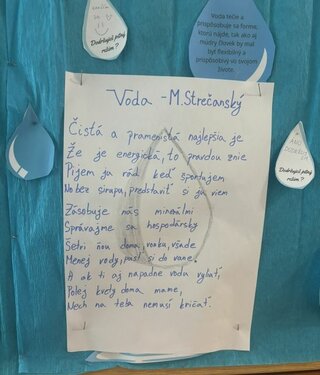 Dodržuješ pitný
režim?
Voda tečie a
prispôsobuje sa forme,
ktorú nájde, tak ako aj
múdry človek by mal
byť flexibilný a
prispôsobivý vo svojom
živote.
Voda - M. Strečanský
Čistá a pramenistá najlepšia je
Že je energická, to pravdou znie
Pijem ja rád keď športujem
No bez sirupu, predstaviť si ju viem
Zásobuje nás minerálmi
Správajme sa hospodársky
Šetri ňou doma, vonku, všade
Menej vody, pusť si do vane.
A ak ti aj napadne vodu vyliať,
Polej kvety doma mame,
Nech na teba nemusí kričať.
Dodržuješ pitný
režim?